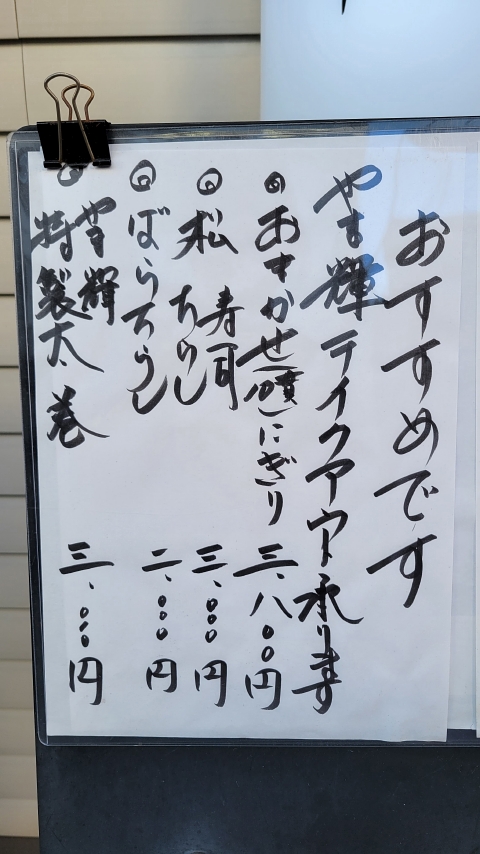 おすすめです
やま輝テイクアウト承ります
◎おまかせにぎり 三、八〇〇円
◎松 寿司 ちらし 三、〇〇〇円
◎ばらちらし 二、〇〇〇円
◎やま輝
特製太巻 三、〇〇〇円